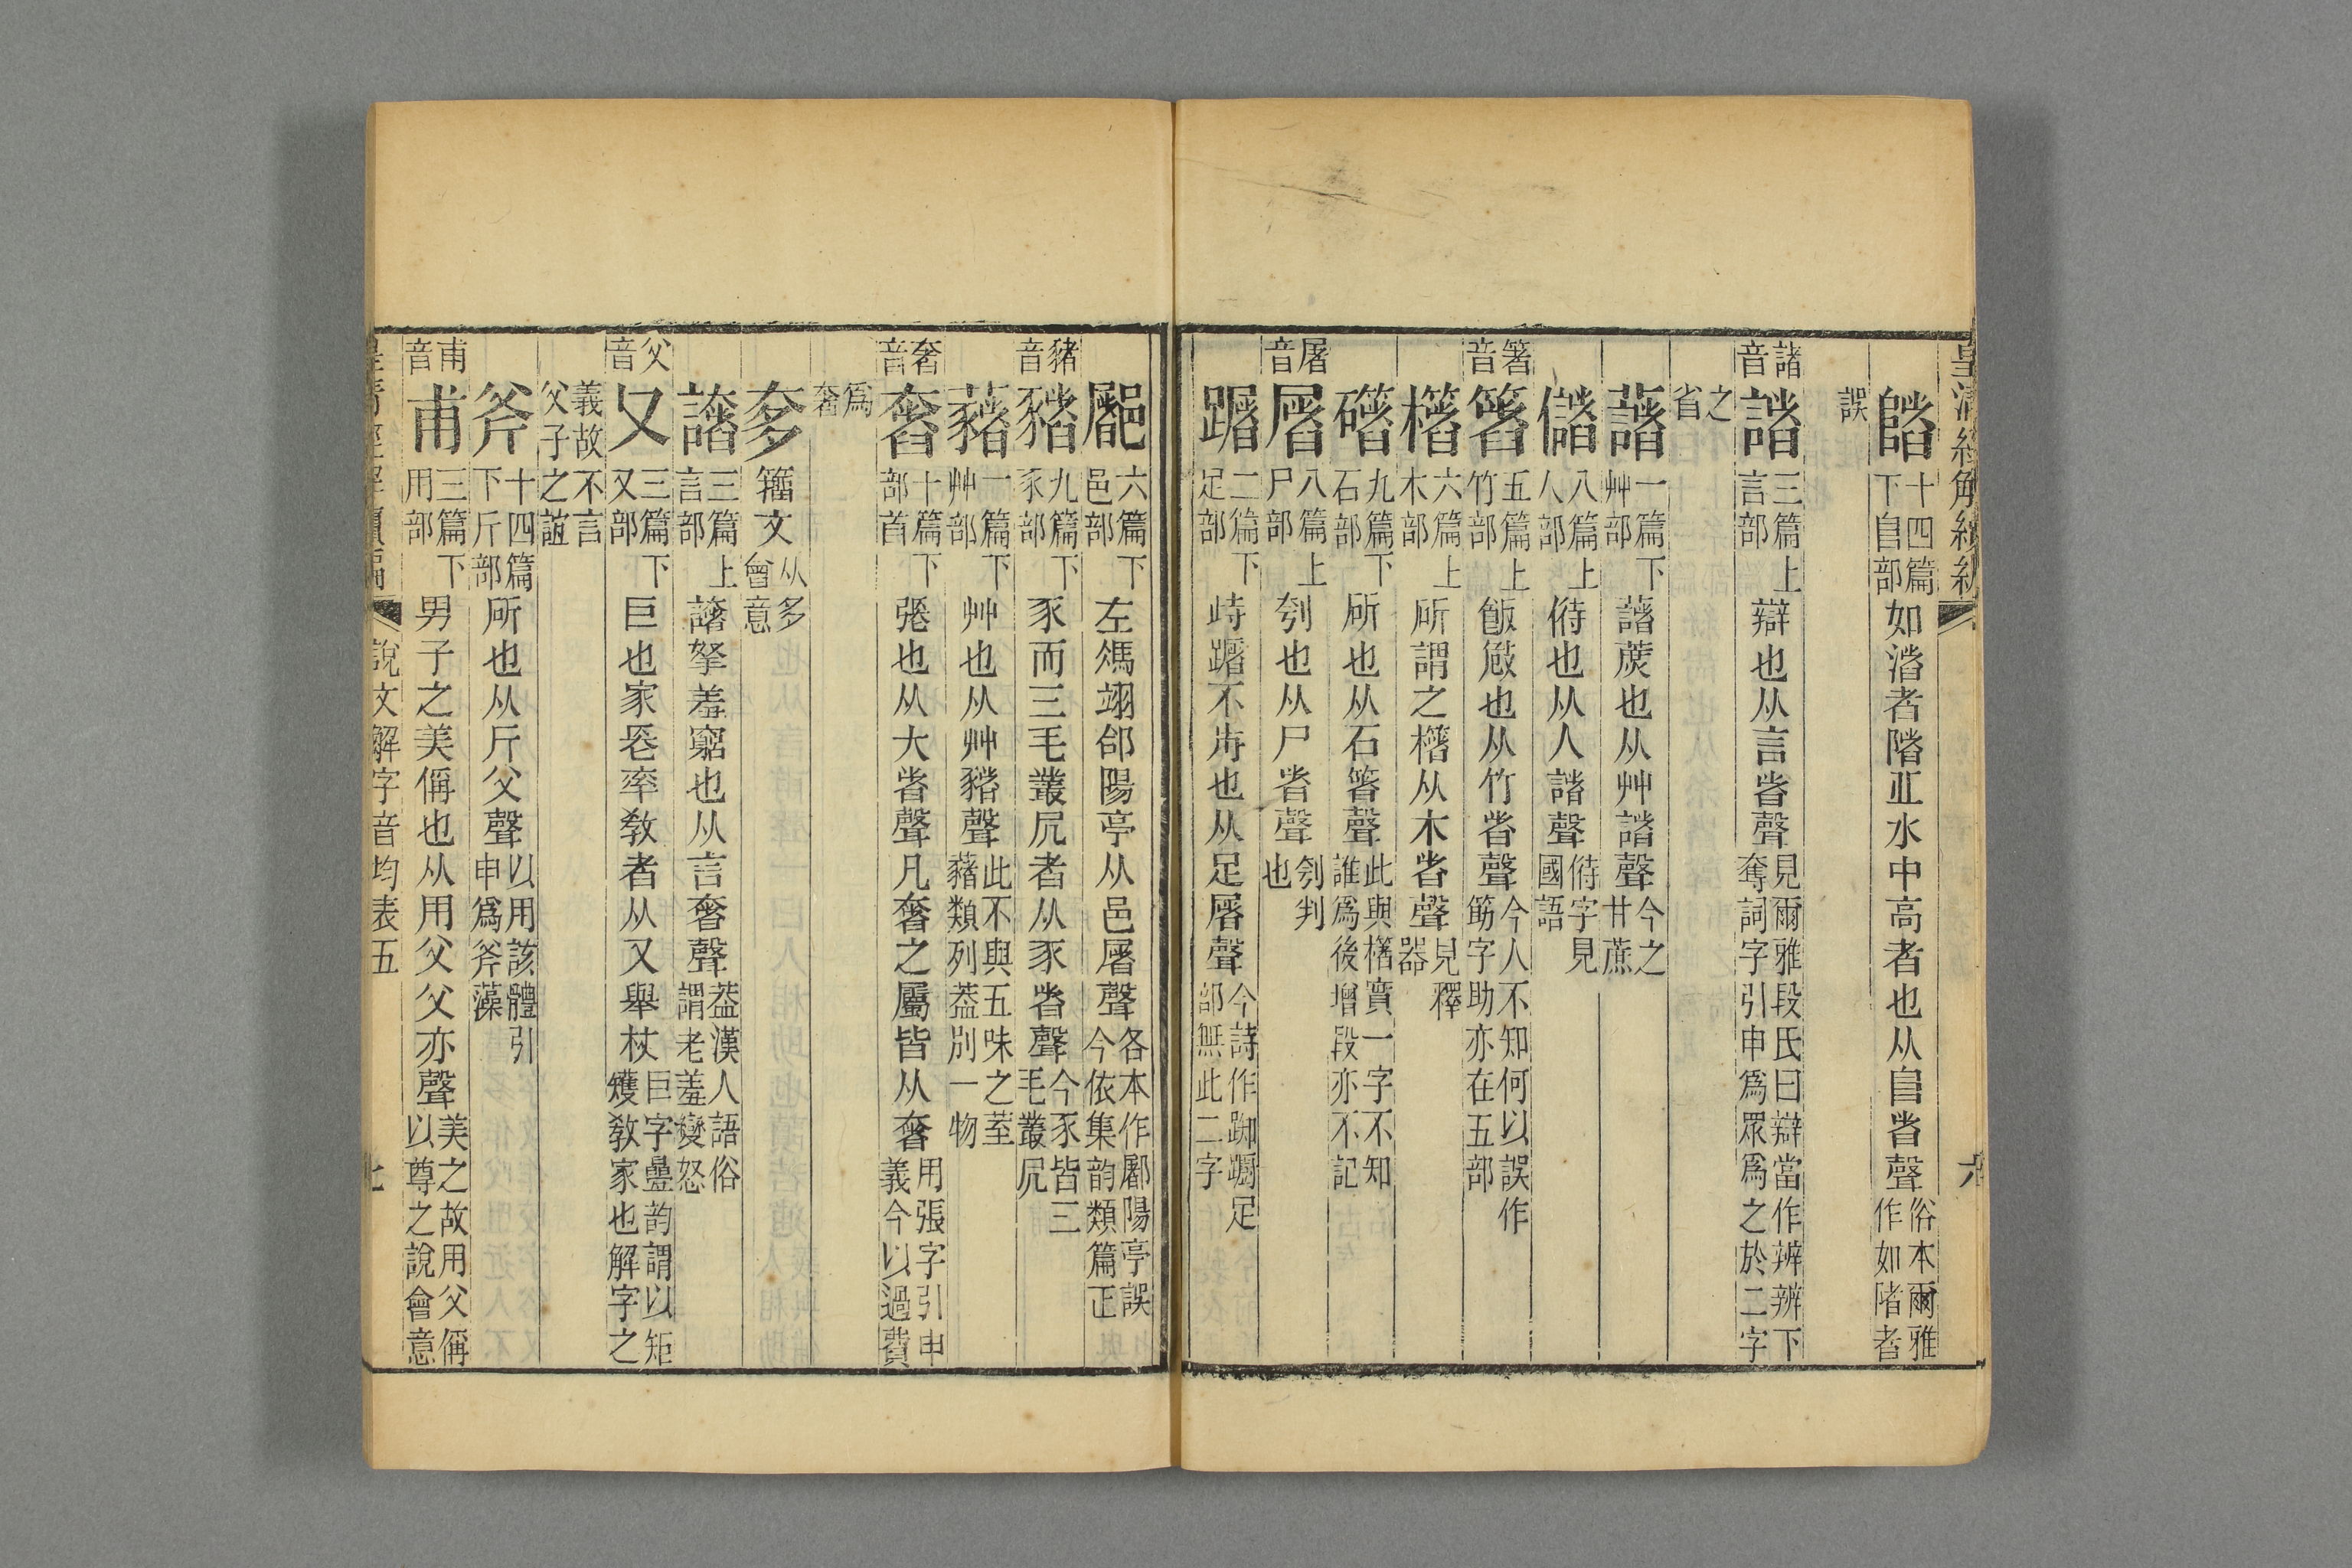 皇清經解續編
六
陼 十四篇下𨸏部 如渚者陼丠水中高者也从𨸏者聲 俗本爾雅作如陼者
誤
諸音 諸 三篇上言部 辯也从言者聲 見爾雅段氏曰辯當作辨辨下奪詞字引申爲眾爲之於二字
之省
藷 一篇下艸部 藷蔗也从艸諸聲 今之甘蔗
儲 八篇上人部 偫也从人諸聲 偫字見國語
箸音 箸 五篇上竹部 飯攲也从竹者聲 今人不知何以誤作筯字助亦在五部
櫡 六篇上木部 斫謂之櫡从木箸聲 見釋器
磼 九篇下石部 斫也从石箸聲 此與櫡實一字不知誰爲後增段亦不記
屠音 屠 八篇上尸部 刳也从尸者聲 刳判也
䠧 二篇下足部 峙䠧不歬也从足屠聲 今詩作踟躕足部無此二字
䣝 六篇下邑部 左馮翊郃陽亭从邑屠聲 各本作䣝陽亭誤今依集韵類篇正
豬音 豬 九篇下豕部 豕而三毛叢凥者从豕者聲 今豕皆三毛叢凥
藸 一篇下艸部 艸也从艸豬聲 此不與五味之荎藸類列葢別一物
奢音 奢 十篇下部首 張也从大者聲凡奢之屬皆从奢 用張字引申義今以過費
爲奢
奓 籒文 从多會意
譇 三篇上言部 譇拏羞窮也从言奢聲 葢漢人語俗謂老羞變怒
父音 父 三篇下又部 巨也家長率敎者从又舉杖 巨字疊韵謂以矩矱敎家也解字之
義故不言父子之誼
斧 十四篇下斤部 所也从斤父聲 以用該體引申爲斧藻
甫音 甫 三篇下用部 男子之美偁也从用父父亦聲 美之故用父偁以尊之說會意
皇清經解續編 說文解字音均表五
七